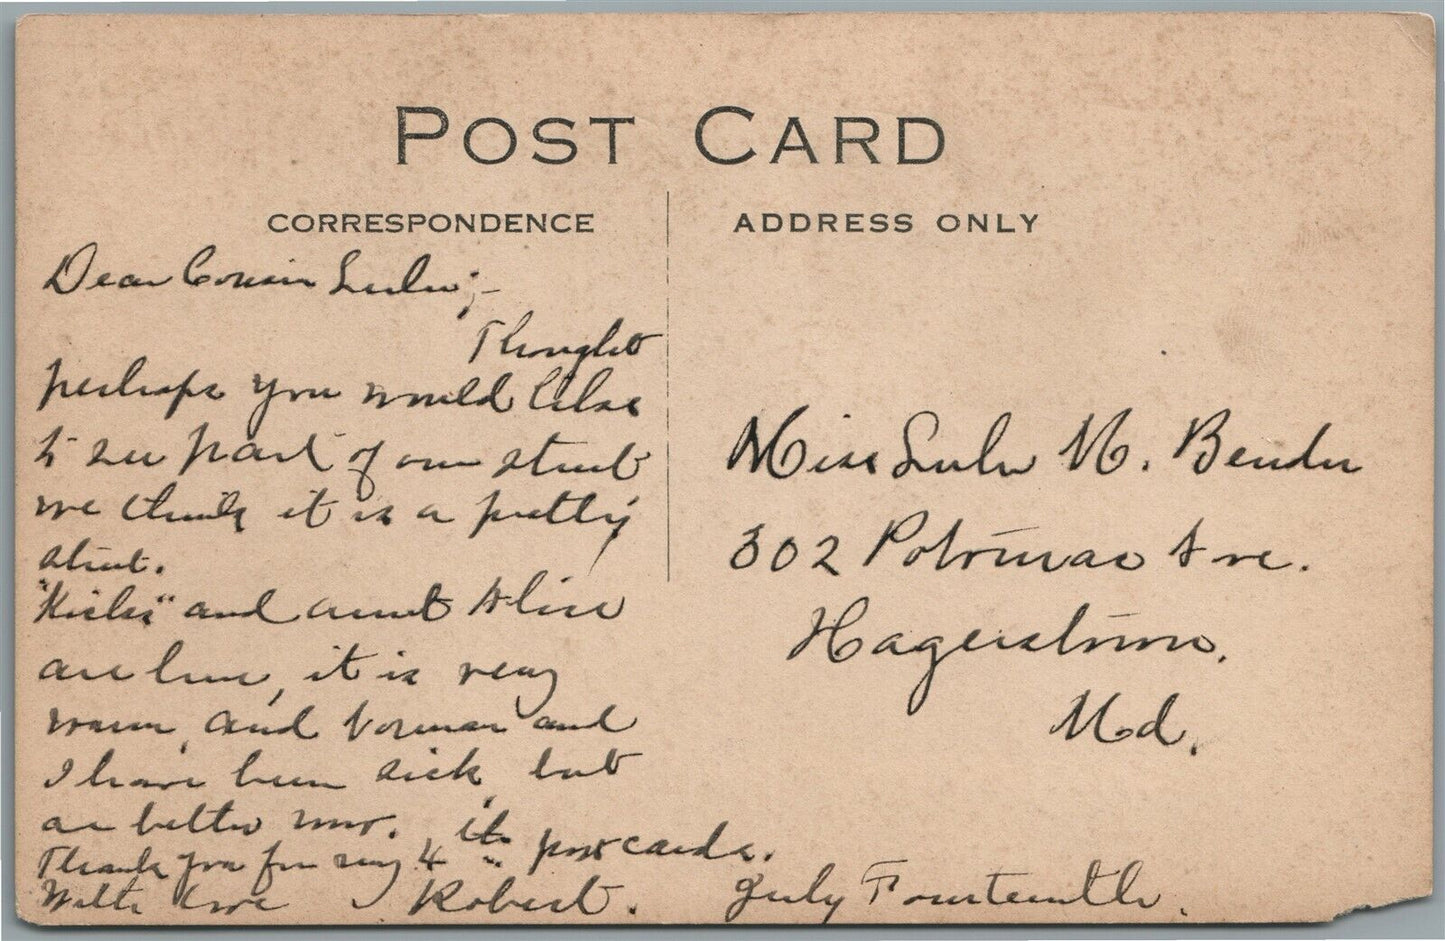 POST CARD
CORRESPONDENCE
ADDRESS ONLY
Dear Cousin Lulu;-
Thought
perhaps you would like
to see part of our street
we think it is a pretty
street.
and aunt Alice
are here, it is very
warm, and Norman and
I have been sick, but
are better now.
Thank you for my 4th post cards.
With love Robert.
July Fourteenth.
Miss Lulu M. Bender
302 Potomac Ave.
Hagerstown,
Md.